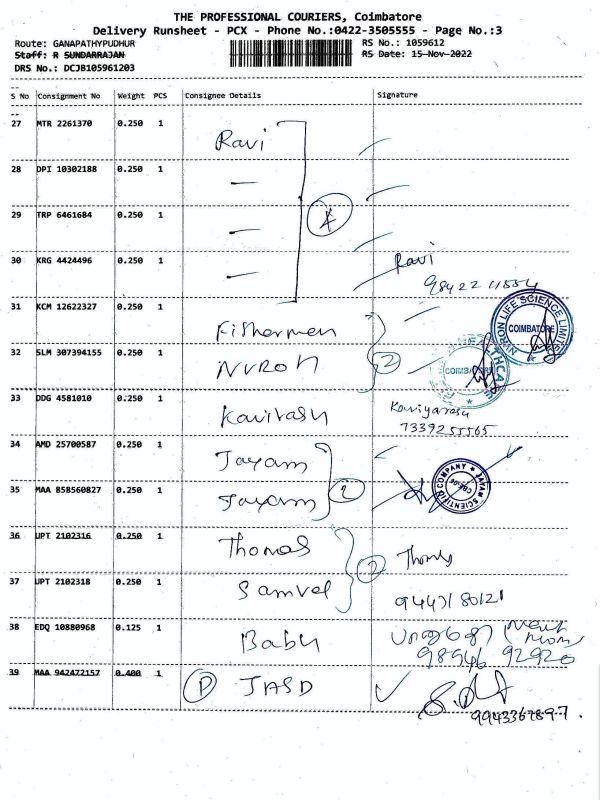 THE PROFESSIONAL COURIERS, Coimbatore
Delivery Runsheet - PCX - Phone No.:0422-3505555 - Page No.:3
Route: GANAPATHYPUDHUR RS No.: 1059612
Staff: R SUNDARRAJAN RS Date: 15-Nov-2022
DRS No.: DCJB105961203
S No Consignment No Weight PCS Consignee Details Signature
27 MTR 2261370 0.250 1 Ravi
28 DPI 10302188 0.250 1 —
29 TRP 6461684 0.250 1 — 4
30 KRG 4424496 0.250 1 — Ravi
31 KCM 12622327 0.250 1 Fishermen
NVRON LIFE SCIENCE LIMITED COIMBATORE
32 SLM 307394155 0.250 1 NVRON 2
COIMBATORE
33 DDG 4581010 0.250 1 Kavirash Kaviyarasu
7339255565
34 AMD 25700587 0.250 1 Jayam
35 MAA 858560827 0.250 1 Jayam 2
JAYAM SCIENTIFIC COMPANY CBE-06
36 UPT 2102316 0.250 1 Thomas 2 Thomas
37 UPT 2102318 0.250 1 Samvel 9447180121
38 EDQ 10880968 0.125 1 Babu
98946 92920
39 MAA 942472157 0.400 1 P JASD
9943367897.